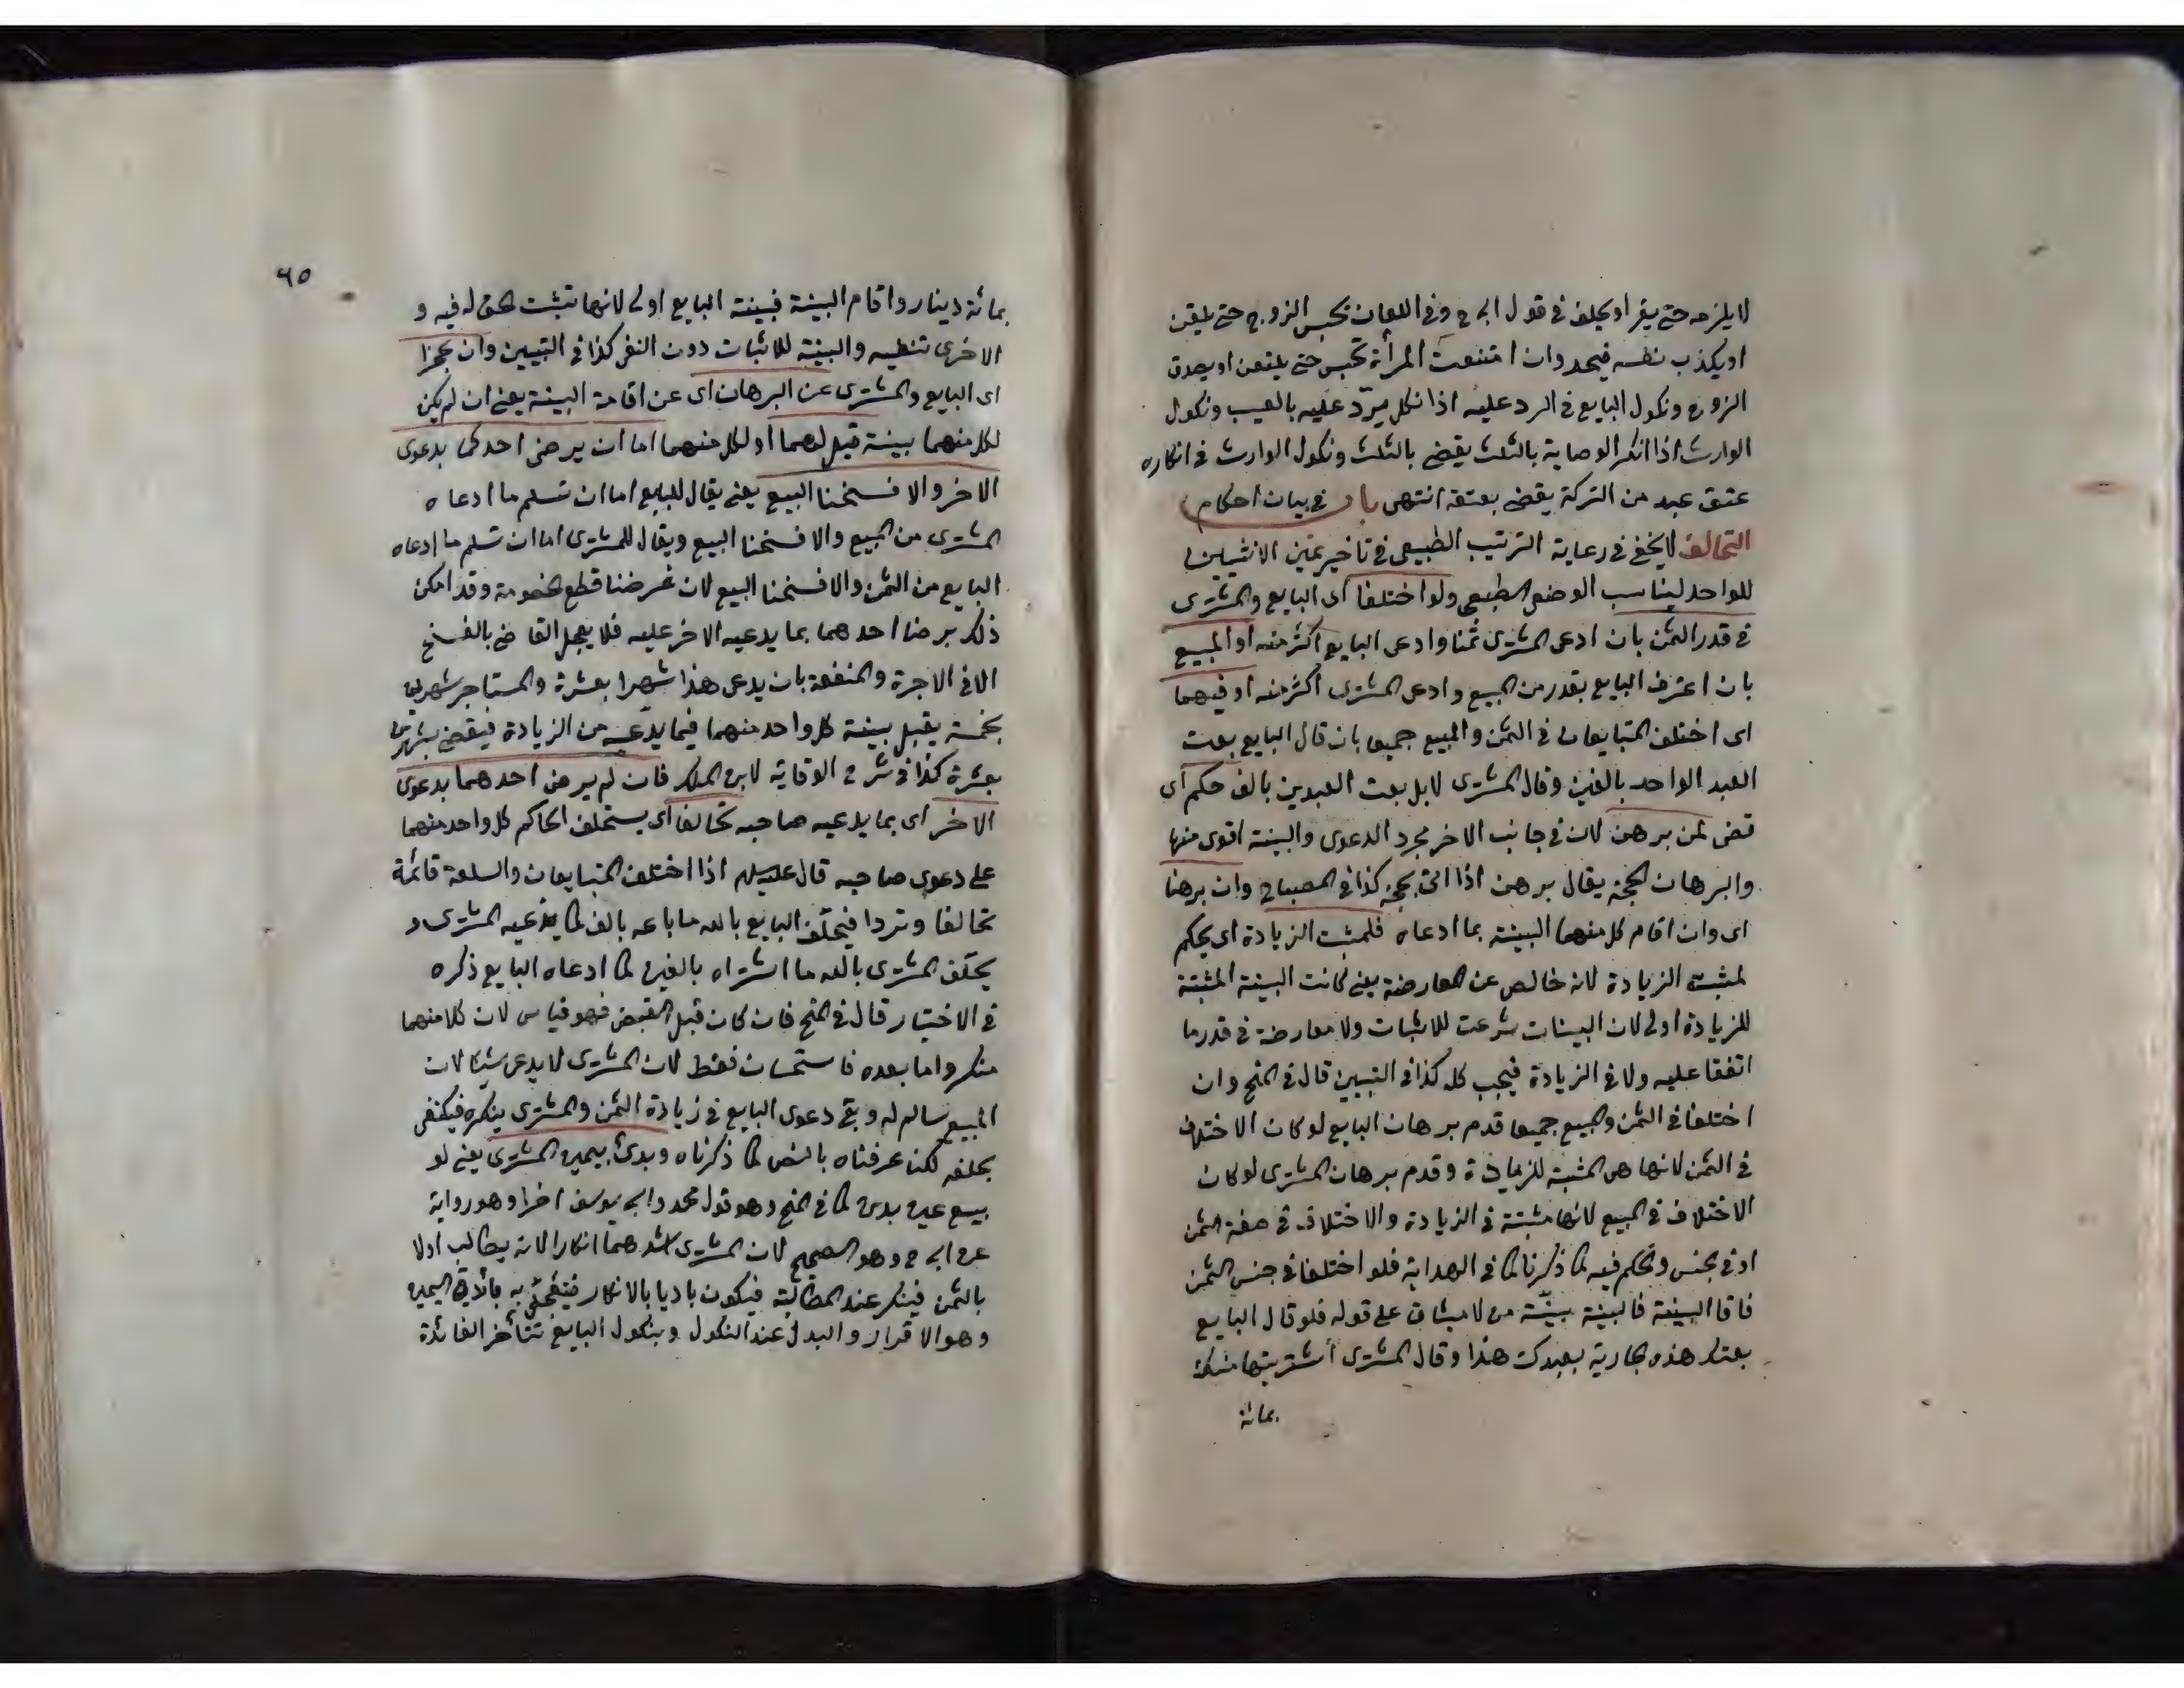 لا يلزمه حتى يقر او يحلف في قول ابى ح وفى اللعان يحبس الزوج حتى يلتعن
او يكذب نفسه فيحد وان امتنعت المرأة تحبس حتى يلتعن او يصدق
الزوج ونكول البايع في الرد عليه اذا نكل يردّ عليه بالعيب ونكول
الوارث اذا انكر الوصاية بالثلث يقضى بالثلث ونكول الوارث في انكاره
عتق عبد من التركة يقضى بعتقه انتهى باب في بيان احكام
التحالف لا يخفى في رعاية الترتيب الطبيعى في تاخير يمين الاثنين
للواحد ليناسب الوضع الطبيعى ولو اختلفا اى البايع والمشترى
في قدر الثمن بان ادعى المشترى ثمنا وادعى البايع اكثر منه او المبيع
بان اعترف البايع بقدر من المبيع وادعى المشترى اكثر منه او فيهما
اى اختلف المتبايعان في الثمن والمبيع جميعا بان قال البايع بعت
العبد الواحد بالفين وقال المشترى لا بل بعت العبدين بالف حكم اى
قضى لمن برهن لان في جانب الاخر مجرد الدعوى والبينة اقوى منها
والبرهان الحجة يقال برهن اذا اتى بحجة كذا في المصباح وان برهنا
اى وان اقام كل منهما البينة بما ادعاه فلمثبت الزيادة اى يحكم
لمثبت الزيادة لانه خالص عن المعارضة يعنى كانت البينة المثبتة
للزيادة اولى لان البينات شرعت للاثبات ولا معارضة في قدر ما
اتفقا عليه ولا في الزيادة فيجب كله كذا في التبيين قال في المنح وان
اختلفا في الثمن والمبيع جميعا قدم برهان البايع لو كان الاختلاف
في الثمن لانها هى المثبتة للزيادة وقدم برهان المشترى لو كان
الاختلاف في المبيع لانها مثبتة في الزيادة والاختلاف في صفة الثمن
او في جنس ونحكم فيه كما ذكرنا كما في الهداية فلو اختلفا في جنس الثمن
فاقاما البينة فالبينة بينّة من لا ميثاق على قوله فلو قال البايع
بعتك هذه الجارية بعبدك هذا وقال المشترى اشتريتها منك
بمائة
٦٥
بمائة دينار واقام البينة فبينة البايع اولى لانها تثبت الحق له فيه و
الاخرى تنفيه والبينة للاثبات دون النفى كذا في التبيين وان عجزا
اى البايع والمشترى عن البرهان اى عن اقامة البينة يعنى ان لم يكن
لكل منهما بينة قيل لهما او لكل منهما اما ان يرضى احدكما بدعوى
الاخر والا فسخنا البيع يعنى يقال للبايع اما ان تسلم ما ادعاه
المشترى من المبيع والا فسخنا البيع ويقال للمشترى اما ان تسلم ما ادعاه
البايع من الثمن والا فسخنا البيع لان غرضنا قطع الخصومة وقد امكن
ذلك برضا احدهما بما يدعيه الاخر عليه فلا يعجل القاضى بالفسخ
الا في الاجرة والمنفعة بان يدعى هذا شهرا بعشرة والمستاجر شهرين
بخمسة يقبل بينة كل واحد منهما فيما يدّعيه من الزيادة فيقضى بشهرين
بعشرة كذا في شرح الوقاية لابن الملك فان لم يرض احدهما بدعوى
الاخر اى بما يدعيه صاحبه تحالفا اى يستحلف الحاكم كل واحد منهما
على دعوى صاحبه قال عليه السلام اذا اختلف المتبايعان والسلعة قائمة
تحالفا وتردا فيحلّف البايع بالله ما باعه بالف كما يدّعيه المشترى و
يحلّف المشترى بالله ما اشتراه بالفين كما ادعاه البايع ذكره
في الاختيار قال في المنح فان كان قبل القبض فهو قياس لان كلا منهما
منكر واما بعده فاستحسان فقط لان المشترى لا يدعى شيئا لان
المبيع سالم له وبقى دعوى البايع في زيادة الثمن والمشترى ينكره فيكفى
بحلفه لكنا عرفناه بالنص كما ذكرناه وبدئ بيمين المشترى يعنى لو
بيع عين بدين كما في المنح وهو قول محمد وابى يوسف اخرا وهو رواية
عن ابى ح وهو الصحيح لان المشترى اشدهما انكارا لانه يطالب اولا
بالثمن فينكر عند المطالبة فيكون باديا بالانكار به فائدة اليمين
وهو الاقرار والبدل عند النكول وبنكول البايع تتأخر الفائدة